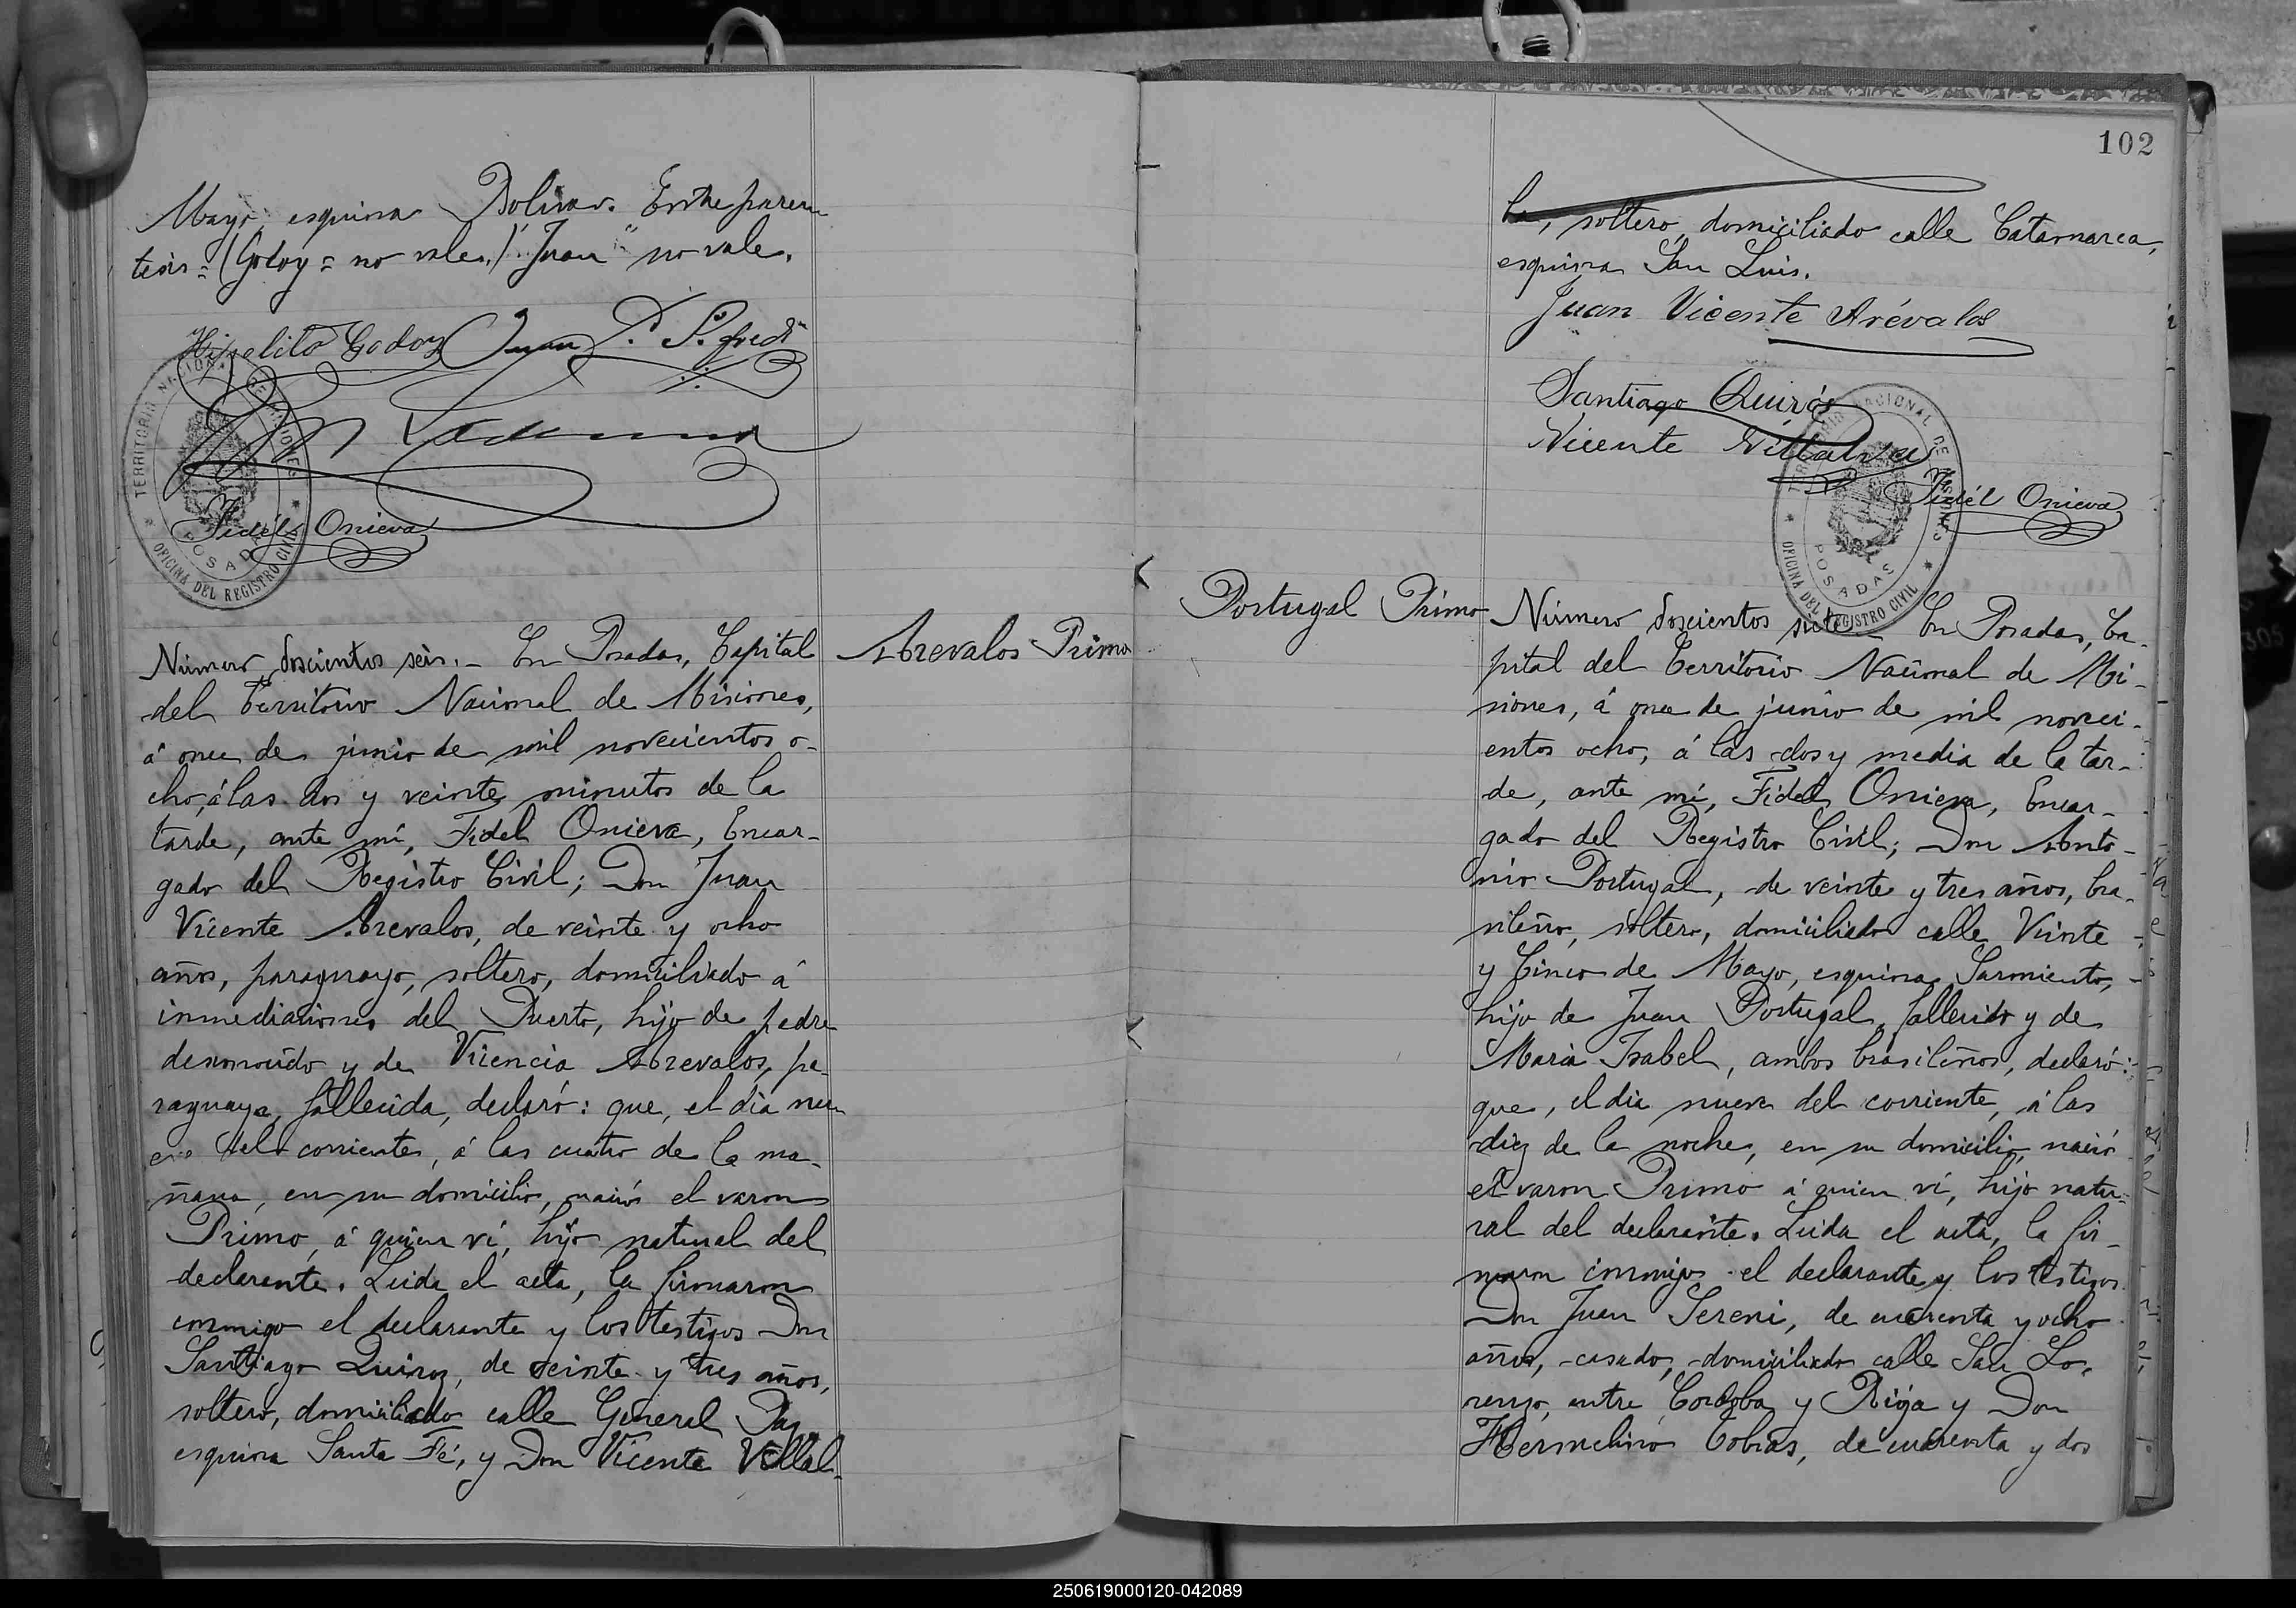 Mayo, esquina Bolivar. Entre paren-
tesis = (Godoy = no vale.) "Juan" no vale.
Hipolito Godoy Juan P.
TERRITORIO NACIONAL DE MISIONES
POSADAS
OFICINA DEL REGISTRO CIVIL
Fidél Onieva
Número doscientos seis. - En Posadas, Capital
del Territorio Nacional de Misiones,
á once de junio de mil novecientos o-
cho, á las dos y veinte minutos de la
tarde, ante mí, Fidel Onieva, Encar-
gado del Registro Civil; Don Juan
Vicente Arevalos, de veinte y ocho
años, paraguayo, soltero, domiciliado á
inmediaciones del Puerto, hijo de padre
desconocido y de Vicencia Arevalos, pa-
raguaya, fallecida, declaró: que, el dia nue-
ve del corriente, á las cuatro de la ma-
ñana, en su domicilio, nació el varon
Primo, á quien ví, hijo natural del
declarante. Leida el acta, la firmaron
conmigo el declarante y los testigos Don
Santiago Quiroz, de veinte y tres años,
soltero, domiciliado calle General Paz
esquina Santa Fé, y Don Vicente Villal-
Arevalos Primo
102
ba, soltero, domiciliado calle Catamarca,
esquina San Luis.
Juan Vicente Arévalos
Santiago Quirós
Vicente Villalva
Fidél Onieva
TERRITORIO NACIONAL DE MISIONES
POSADAS
OFICINA DEL REGISTRO CIVIL
Portugal Primo
Número doscientos siete - En Posadas, Ca-
pital del Territorio Nacional de Mi-
siones, á once de junio de mil noveci-
entos ocho, á las dos y media de la tar-
de, ante mí, Fidel Onieva, Encar-
gado del Registro Civil; Don Anto-
nio Portugal, de veinte y tres años, bra-
sileño, soltero, domiciliado calle Veinte
y Cinco de Mayo, esquina Sarmiento,
hijo de Juan Portugal, fallecido y de
Maria Isabel, ambos brasileños, declaró:
que, el dia nueve del corriente, á las
diez de la noche, en su domicilio, nació
el varon Primo á quien ví, hijo natu-
ral del declarante. Leida el acta, la fir-
maron conmigo el declarante y los testigos
Don Juan Sereni, de cuarenta y ocho
años, casado, domiciliado calle San Lo-
renzo, entre Cordoba y Rioja y Don
Hermelino Cobias, de cuarenta y dos
250619000120-042089